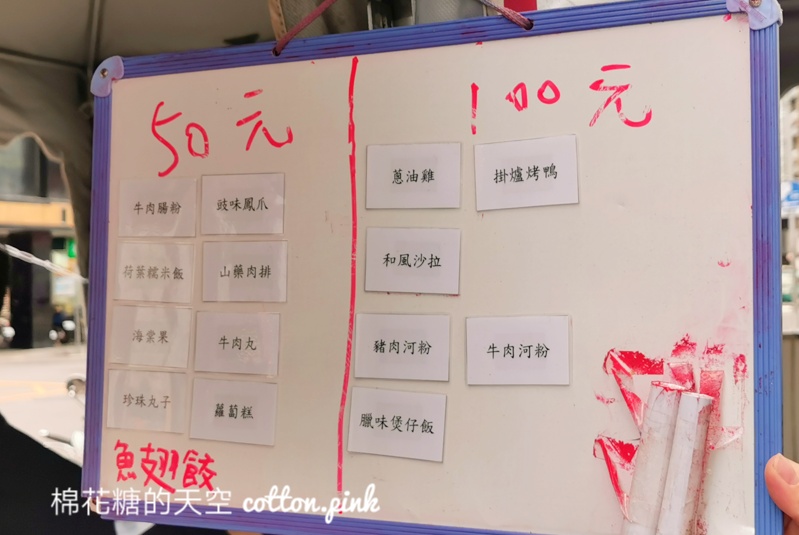 50元
牛肉腸粉
豉味鳳爪
荷葉糯米飯
山藥肉排
海棠果
牛肉丸
珍珠丸子
蘿蔔糕
魚翅餃
100元
蔥油雞
掛爐烤鴨
和風沙拉
豬肉河粉
牛肉河粉
臘味煲仔飯
棉花糖的天空 cotton.pink